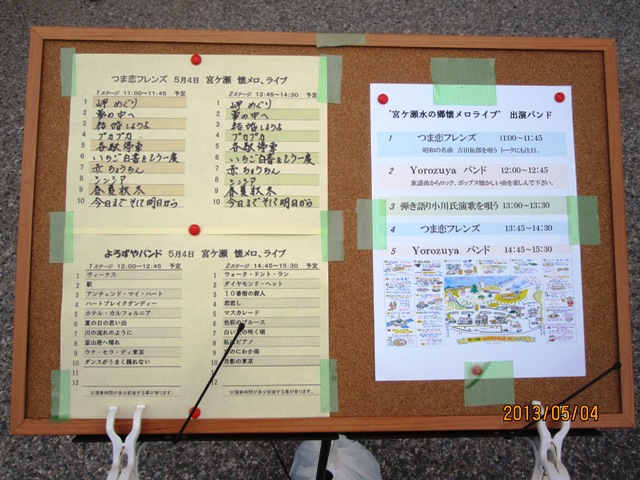 つま恋フレンズ 5月4日 宮ケ瀬 懐メロ、ライブ
1ステージ 11:00～11:45 予定
1 岬めぐり
2 夢の中へ
3 結婚しようよ
4 プカプカ
5 各駅停車
6 いちご白書をもう一度
7 赤ちょうちん
8 シンシア
9 春夏秋冬
10 今日までそして明日から
2ステージ 13:45～14:30 予定
1 岬めぐり
2 夢の中へ
3 結婚しようよ
4 プカプカ
5 各駅停車
6 いちご白書をもう一度
7 赤ちょうちん
8 シンシア
9 春夏秋冬
10 今日までそして明日から
よろずやバンド 5月4日 宮ケ瀬 懐メロ、ライブ
1ステージ 12:00～12:45 予定
1 ヴィーナス
2 駅
3 アンチェンド・マイ・ハート
4 ハートブレイクダンディー
5 ホテル・カルフォルニア
6 夏の日の思い出
7 川の流れのように
8 釜山港へ帰れ
9 ウナ・セラ・ディ東京
10 ダンスがうまく踊れない
11
12
※演奏時間が多少前後する事が有ります。
2ステージ 14:45～15:30 予定
1 ウォーク・ドント・ラン
2 ダイヤモンド・ヘット
3 10番街の殺人
4 君恋し
5 マスカレード
6 色彩のブルース
7 白い
の咲く頃
8 ピアノ
9 のにわか雨
10 月影の東京
12
※演奏時間が多少前後する事が有ります。
"宮ケ瀬水の郷懐メロライブ" 出演バンド
1 つま恋フレンズ 11:00～11:45
昭和の名曲 吉田拓郎を唄う トークにも注目。
2 Yorozuya バンド 12:00～12:45
歌謡曲からロック、ポップス懐かしい曲を楽しんで下さい。
3 弾き語り小川氏演歌を唄う 13:00～13:30
4 つま恋フレンズ 13:45～14:30
5 Yorozuya バンド 14:45～15:30
2013/05/04